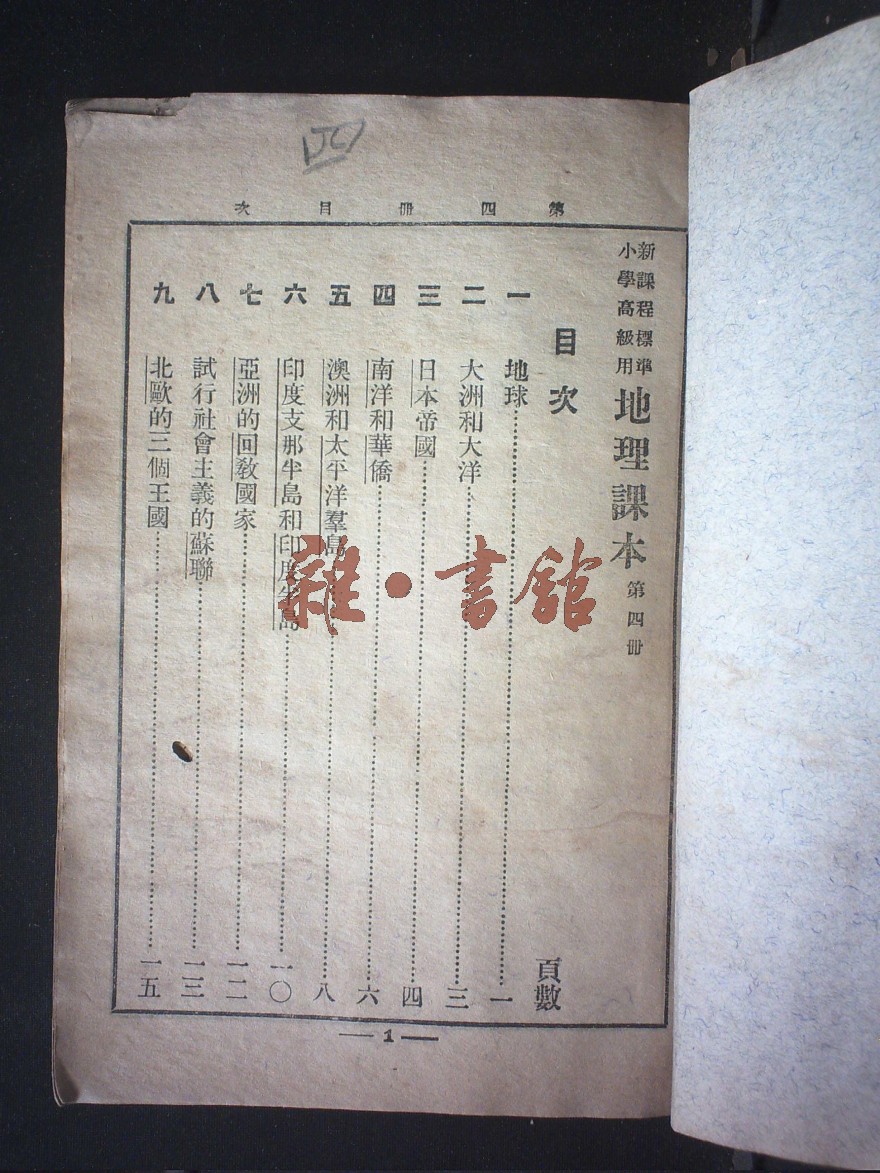 四
第四冊目次
新課程標準
小學高級用
地理課本 第四冊
目次
頁數
一 地球……一
二 大洲和大洋……三
三 日本帝國……四
四 南洋和華僑……六
五 澳洲和太平洋羣島……八
六 印度支那半島和印度半島……一〇
七 亞洲的回教國家……一二
八 試行社會主義的蘇聯……一三
九 北歐的三個王國……一五
雜·書館
1